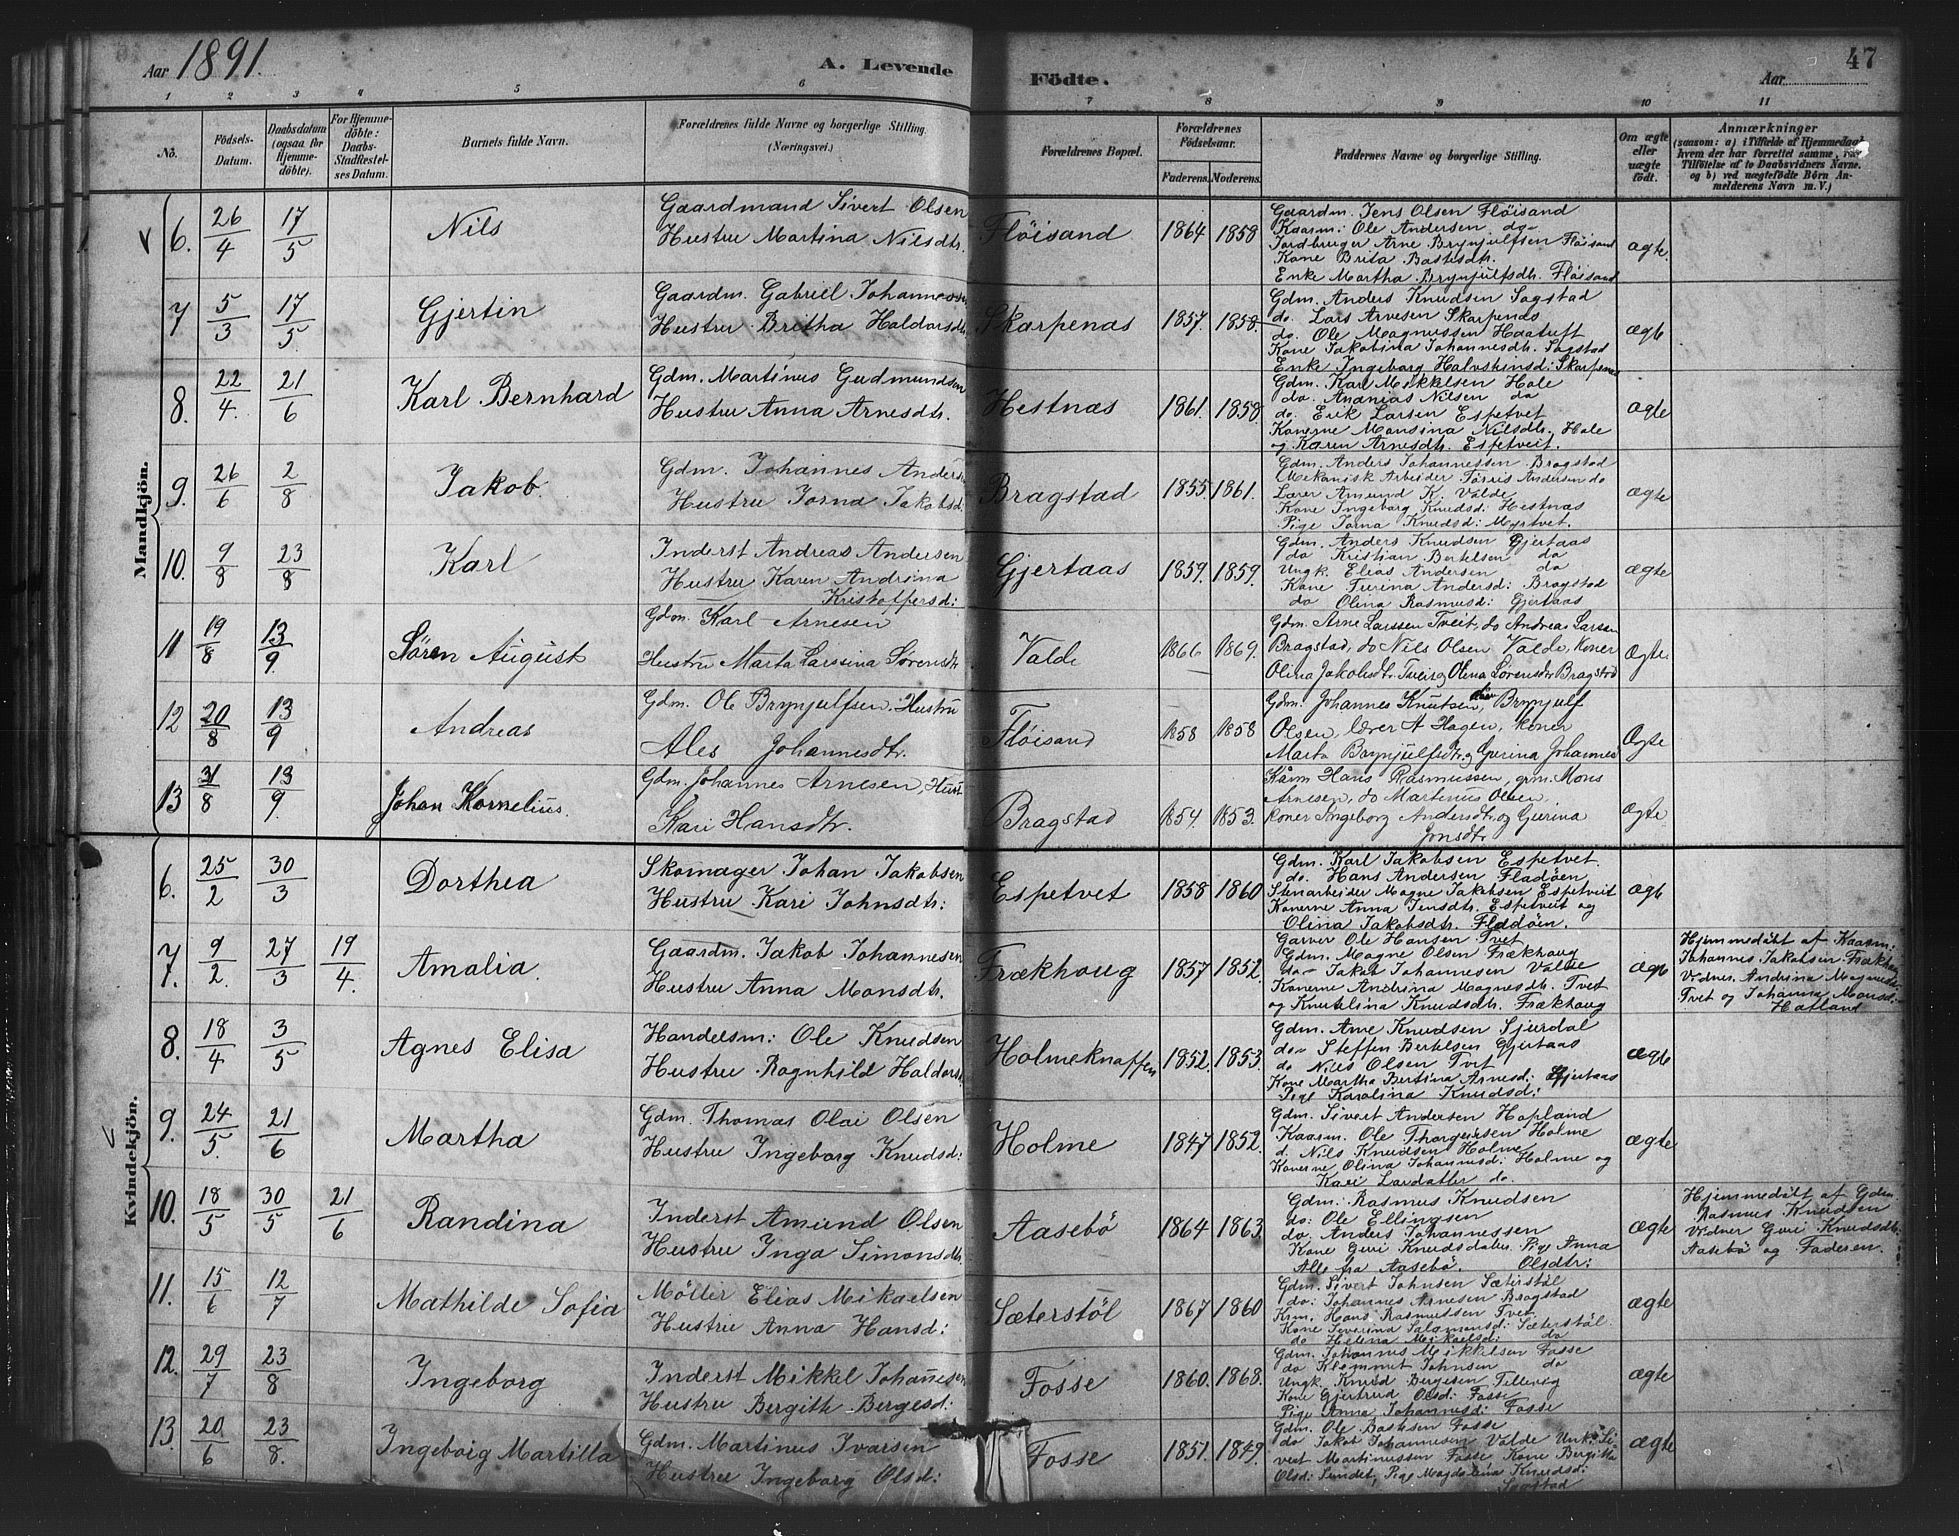 Aar 1891.
A. Levende
Födte.
Aar
47
1 2 3 4 5 6 7 8 9 10 11
No.
Födsels-Datum.
Daabsdatum (ogsaa for Hjemme-döbte).
For Hjemme-döbte: Daabs-Stadfestel-ses Datum.
Barnets fulde Navn.
Forældrenes fulde Navne og borgerlige Stilling.
(Næringsvei.)
Forældrenes Bopæl.
Forældrenes Födselsaar.
Faderens. Moderens.
Faddernes Navne og borgerlige Stilling.
Om ægte eller uægte födt.
Anmærkninger
(saasom: a) i Tilfælde af Hjemmedaab, hvem der har forrettet samme,
Tilföielse af to Daabsvidners Navne, og b) ved uægtefödte Börn An-melderens Navn m. V.)
Mandkjön.
6. 26/4 17/5 Nils
Gaardmand Sivert Olsen
Hustru Martina Nilsdtr.
Flöisand 1864 1858
Gaardm. Jens Olsen Flöisand
Kaarm: Ole Andersen do
Jordbruger Arne Brynjulfsen Flöisand
Kone Brita Bastesdtr.
Enke Martha Brynjulfsdtr. Flöisand
ægte.
7 5/3 17/5 Gjertin
Gaardm. Gabriel Johannessen
Hustru Britha Haldorsdtr
Skarpenas 1857. 1858.
Gdm. Anders Knudsen Sagstad
do. Lars Arvesen Skarpenas
do. Ole Magnussen Haatuft
Kone Jakobina Johannesdtr. Sagstad
Enke Ingeborg Halvstensd: Skarpenas
ægte
8. 22/4. 21/6 Karl Bernhard
Gdm. Martinus Gudmundsen
Hustru Anna Arnesdtr.
Hestnas 1861. 1858.
Gdm. Karl Mikkelsen Hole
do. Ananias Nilsen do
do. Erik Larsen Espetvet
Konerne Monsina Nilsdtr. Hole
og Karen Arnesdtr. Espetveit.
ægte
9. 26/6 2/8 Jakob.
Gdm. Johannes Anders
Hustru Jorna Jakobsd:
Bragstad 1855. 1861.
Gdm. Anders Johannessen Bragstad
Mekanisk Arbeider Törris Andersen do
Lærer Amund K. Valde
Kone Ingeborg Knudsd: Hestnas
Pige Jorna Knudsd: Mjøtvet.
ægte
10. 9/8 23/8 Karl
Inderst Andreas Andersen
Hustru Karen Andrina
Kristoffersd:
Gjertaas 1859. 1859.
Gdm. Anders Knudsen Gjertaas
do Kristian Bertelsen do
Ungk. Elias Andersen do
Kone Turina Andersd: Bragstad
do Olina Rasmusd: Gjertaas
ægte
11 19/8 13/9. Sören August
Gdm. Karl Arnesen
Hustru Marta Larsina Sørensdtr
Valde 1866 1869.
Gdm. Arne Larssen Tveit, do Andrea Larsen
Bragstad, do Nils Olsen Valde, Koner
Olina Jakobsdtr Tveit og Olina Sörensdtr Bragstad
Ægte
12 20/8 13/9 Andreas
Gdm. Ole Brynjulfsen, Hustru
Ales Johannesdtr.
Flöisand 1858 1858
Gdm. Johannes Knutsen, Brynjulf
Olsen, Lærer A Hagen, Koner
Marta Brynjulfsdtr og Gurina Johannes
Ægte
13 31/8 13/9. Johan Kornelius.
Gdm. Johannes Arnesen, Hust
Kari Hansdtr.
Bragstad 1854. 1853.
Kårm Hans Rasmussen, grm. Mons
Arnesen, do Martinus Olsen,
Koner Ingeborg Andersdtr og Gurina
Jonsdtr
Ægte
Kvindekjön.
6. 25/2 30/3 Dorthea
Skomager Johan Jakobsen
Hustru Kari Johnsdtr:
Espetvet 1858 1860
Gdm. Karl Jakobsen Espetvet.
do. Hans Andersen Fladöen,
Stenarbeider Magne Jakobsen Espetveit
Konerne Anna Jensdtr. Espetveit og
Olina Jakobsdtr. Fladöen.
ægte
7. 9/2. 27/3 19/4. Amalia.
Gaardm. Jakob Johannesen
Hustru Anna Monsdtr.
Frækhaug 1857 1852.
Garver Ole Hansen Tvet
Gdm. Magne Olsen Frækhaug
do Jakob Johannesen Valde
Konerne Andrina Magnesdtr. Tvet
og Knutelina Knudsdtr. Frækhaug
ægte
Hjemmedöbt af Kaarm:
Johannes Jakobsen Frækhaug
Vidner Andrina Magnesdtr
Tvet og Johanna Monsd:
Hatland
8. 18/4 3/5 Agnes Elisa
Handelsm: Ole Knudsen
Hustru Ragnhild Haldorsd
Holmeknappen 1852. 1853.
Gdm. Arne Knudsen Sjurdal
do Steffen Bertelsen Gjertaas
do Nils Olsen Tvet
Kone Martha Bertina Arnesd: Gjertaas
Pige Karolina Knudsd:
ægte
9. 24/5. 21/6 Martha
Gdm. Thomas Olai Olsen
Hustru Ingeborg Knudsd:
Holme 1847 1852.
Gdm. Sivert Andersen Hopland
Kaarm. Ole Thorgeirsen Holme
d. Nils Knudsen Holme
Konerne Olina Johannesd: Holme og
Kari Larsdatter do.
ægte
10. 18/5 30/5 21/6 Randina
Inderst Amund Olsen
Hustru Inga Simonsdtr.
Aasebö 1864 1863.
Gdm: Rasmus Knudsen
do: Ole Ellingsen
do. Anders Johannessen
Kone Guri Knudsdatter Pige Anna
Alle fra Aasebö. Olsdtr:
ægte
Hjemmedöbt af Gdm.
Rasmus Knudsen
Vidner Guri Knudsdtr:
Aasebö og Faderen.
11. 15/6 12/7 Mathilde Sofia
Möller Elias Mikaelsen
Hustru Anna Hansd:
Sæterstöl 1867 1860
Gdm. Sivert Johnsen Sæterstöl
do: Johannes Arnesen Bragstad
Krm. Hans Rasmussen Tvet
Kone Severina Salamonsd: Sæterstöl.
do Helena Mikaelsd: do
ægte
12. 29/7 23/8 Ingeborg
Inderst Mikkel Johannesen
Hustru Bergith Bergesd:
Fosse 1860. 1868.
Gdm. Johannes Mikkelsen Fosse
do Klemmet Johnsen do
Ungk. Knud Bergesen Tillevig
Kone Gjertrud Olsd: Fosse
Pige Anna Johannesd: Fosse
ægte
13. 20/6 23/8. Ingeborg Martilla
Gdm. Martinus Ivarsen
Hustru Ingeborg Olsd:
Fosse 1851. 1849.
Gdm. Ole Bastesen Fosse
do Jakob Johannesen Valde Unk: Si
vert Martinussen Fosse Kone Bergitta
Olsd: Sundet, Pige Magdalena Knudsd:
Sagstad
ægte